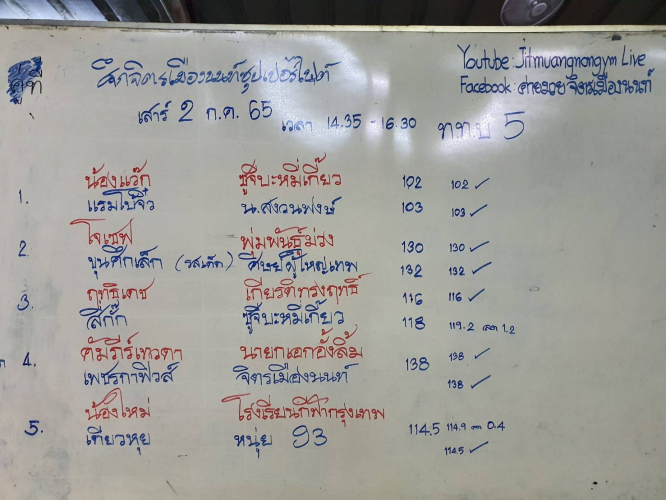 คู่ที่
ศึกจิตรเมืองนนท์ซุปเปอร์ไฟต์
Youtube: Jitmuangnongym Live
Facebook: ค่ายมวย จิตรเมืองนนท์
เสาร์ 2 ก.ค. 65 เวลา 14.35 - 16.30 ททบ 5
1.
น้องแว๊ก ซูจีบะหมี่เกี๊ยว 102 102 ✓
แรมโบ้จิ๋ว น.สงวนพงษ์ 103 103 ✓
2.
โจเซฟ พุ่มพันธุ์ม่วง 130 130 ✓
ขุนศึกเล็ก ศิษย์ผู้ใหญ่เทพ 132 132 ✓
3.
ฤทธิเดช เกียรติทรงฤทธิ์ 116 116 ✓
สีกั๊ก ซูจีบะหมี่เกี๊ยว 118 119.2 ลด 1.2
4.
คัมภีร์เทวดา นายกเอกอั้งลิ้ม 138 138 ✓
เพชรกาฟิวส์ จิตรเมืองนนท์ 138 ✓
5.
น้องใหม่ โรงเรียนกีฬากรุงเทพ 114.5 114.9 ลด 0.4
เทียวหุย หนุ่ย 93 114.5 ✓